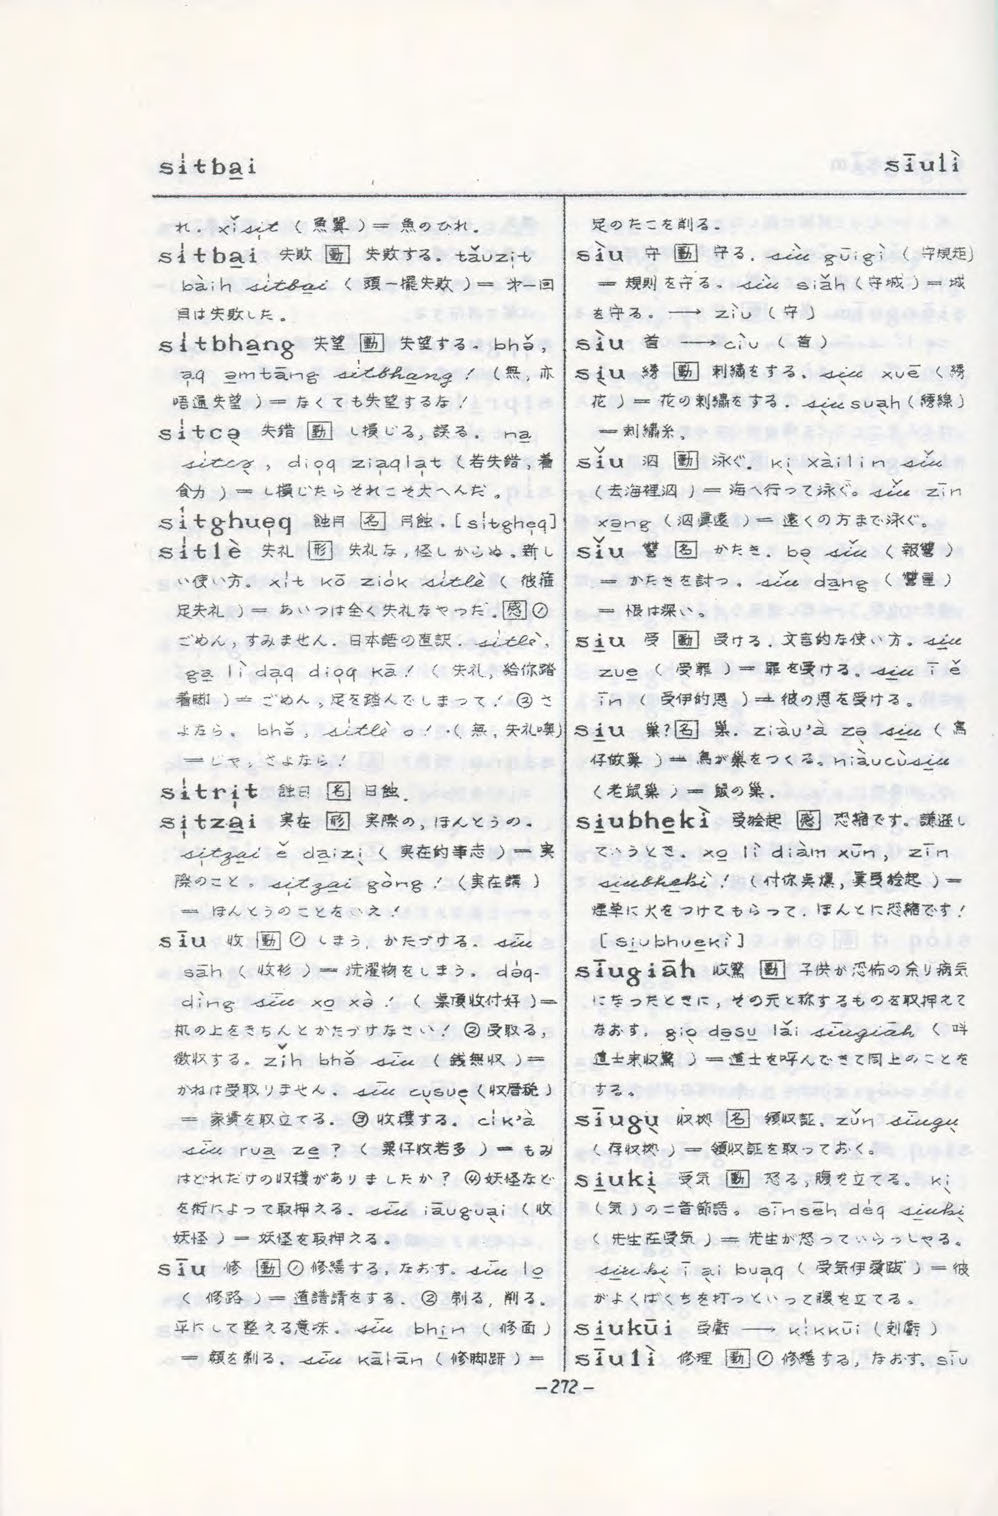 si̍tba̱i
sīulì
れ. xǐsi̍t (魚翼) = 魚のひれ.
si̍tba̱i 失敗 [動] 失敗する. tǎuzi̍t
bàih si̍tba̱i (頭一擺失敗) = 才一回
目は失敗した。
si̍tbha̱ng 失望 [動] 失望する. bhǒ,
a̱q a̱mtāng si̍tbha̱ng! (無,亦
唔通失望) = なくても失望するな!
si̍tco̱ 失錯 [動] し損じる,誤る. na̱
si̍tco̱, dio̱q zia̱qla̱t (若失錯,着
食力) = し損じたらそれこそ大へんだ。
si̍tghue̱q 蝕月 [名] 月蝕. [si̍tghe̱q]
si̍tlè 失礼 [形] 失礼な,怪しからぬ.新し
い使い方. xi̍t kō ziók si̍tlè (彼箍
足失礼) = あいつは全く失礼なやつだ. [感] ①
ごめん,すみません. 日本語の直訳. si̍tlè,
ga̱ lì da̱q dio̱q kā! (失礼,給你踏
着脚) = ごめん,足を踏んでしまって! ② さ
よなら。 bhǒ, si̍tlè o! (無,失礼噢)
= じゃ,さよなら!
si̍tri̍t 蝕日 [名] 日蝕.
si̍tza̱i 実在 [形] 実際の,ほんとうの.
si̍tza̱i ě da̱izi̱ (実在的事志) = 実
際のこと。 si̍tza̱i gòng! (実在講)
= ほんとうのことをいえ!
sīu 收 [動] ① しまう,かたづける. sīu
sāh (收衫) = 洗濯物をしまう。 dòq-
dìng sīu xo̱ xò! (桌頂收付好) =
机の上をきちんとかたづけなさい! ② 受取る,
徴収する。 zǐh bhǒ sīu (銭無収) =
かねは受取りません. sīu cùsue̱ (収厝税)
= 家賃を取立てる. ③ 收穫する. cik'à
sīu rua̱ ze̱? (粟仔收若多) = もみ
はどれだけの収穫がありましたか? ④ 妖怪など
を術によって取押える. sīu iāuguai (收
妖怪) = 妖怪を取押える。
sīu 修 [動] ① 修繕する,なおす. sīu lo̱
(修路) = 道譜請をする. ② 剃る,削る.
平にして整える意味. sīu bhi̱n (修面)
= 顔を剃る. sīu kālān (修脚趼) =
足のたこを削る.
siù 守 [動] 守る. siù gūigì (守規矩)
= 規則を守る。 siù siǎh (守城) = 城
を守る。 ―→ ziù (守)
siù 首 ―→ ciù (首)
siu 綉 [動] 刺繡をする. siu xuē (綉
花) = 花の刺繡をする. siusuah (綉線)
= 刺繡糸.
siǔ 泅 [動] 泳ぐ. ki xàilin siǔ
(去海裡泅) = 海へ行って泳ぐ。 siǔ zīn
xa̱ng (泅眞遠) = 遠くの方まで泳ぐ。
siǔ 讐 [名] かたき. bo siǔ (報讐)
= かたきを討つ. siǔ da̱ng (讐重)
= 恨は深い。
si̱u 受 [動] 受ける. 文言的な使い方. si̱u
zue̱ (受罪) = 罪を受ける。 si̱u ī ě
īn (受伊的恩) = 彼の恩を受ける。
si̱u 巣? [名] 巣. ziàu'à zo si̱u (鳥
仔做巣) = 鳥が巣をつくる。 niàucùsi̱u
(老鼠巣) = 鼠の巣.
si̱ubhe̱kì 受𣍐起 [感] 恐縮です. 謙遜し
ていうとき. xo̱ lì diàm xūn, zīn
si̱ubhe̱kì! (付你点燻,真受𣍐起) =
煙草に火をつけてもらって,ほんとに恐縮です!
[si̱ubhue̱kì]
sīugiāh 收驚 [動] 子供が恐怖の余り病気
になったときに,その元と称するものを取押えて
なおす. gio do̱su̱ lǎi sīugiāh (叫
道士来収驚) = 道士を呼んできて同上のことを
する。
sīugu 収拠 [名] 領収証. zǔn sīugu
(存収拠) = 領収証を取っておく。
si̱uki 受気 [動] 怒る,腹を立てる。 ki
(気)の二音節語。 sīnsēh dèq si̱uki
(先生在受気) = 先生が怒っていらっしゃる。
si̱u-ki ī ai bua̱q (受気伊愛跋) = 彼
がよくばくちを打つといって腹を立てる。
si̱ukūi 受虧 ―→ kikkūi (剋虧)
sīulì 修理 [動] ① 修繕する,なおす. sīu
-272-